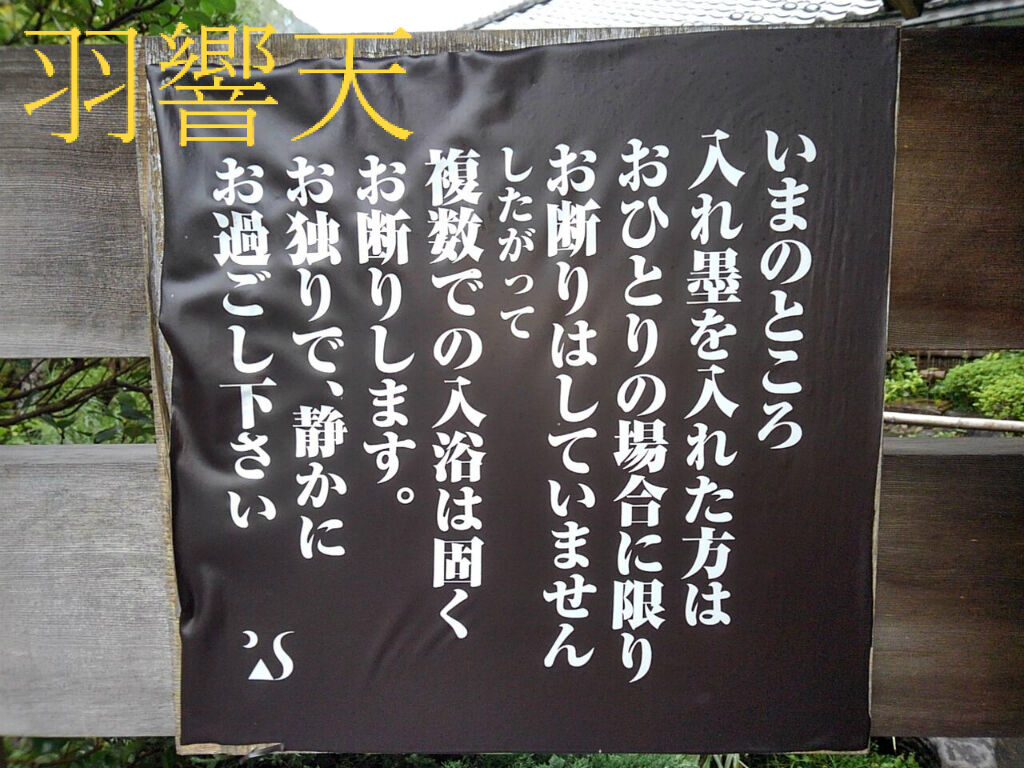 羽響天
いまのところ
入れ墨を入れた方は
おひとりの場合に限り
お断りはしていません
したがって
複数での入浴は固く
お断りします。
お独りで、静かに
お過ごし下さい